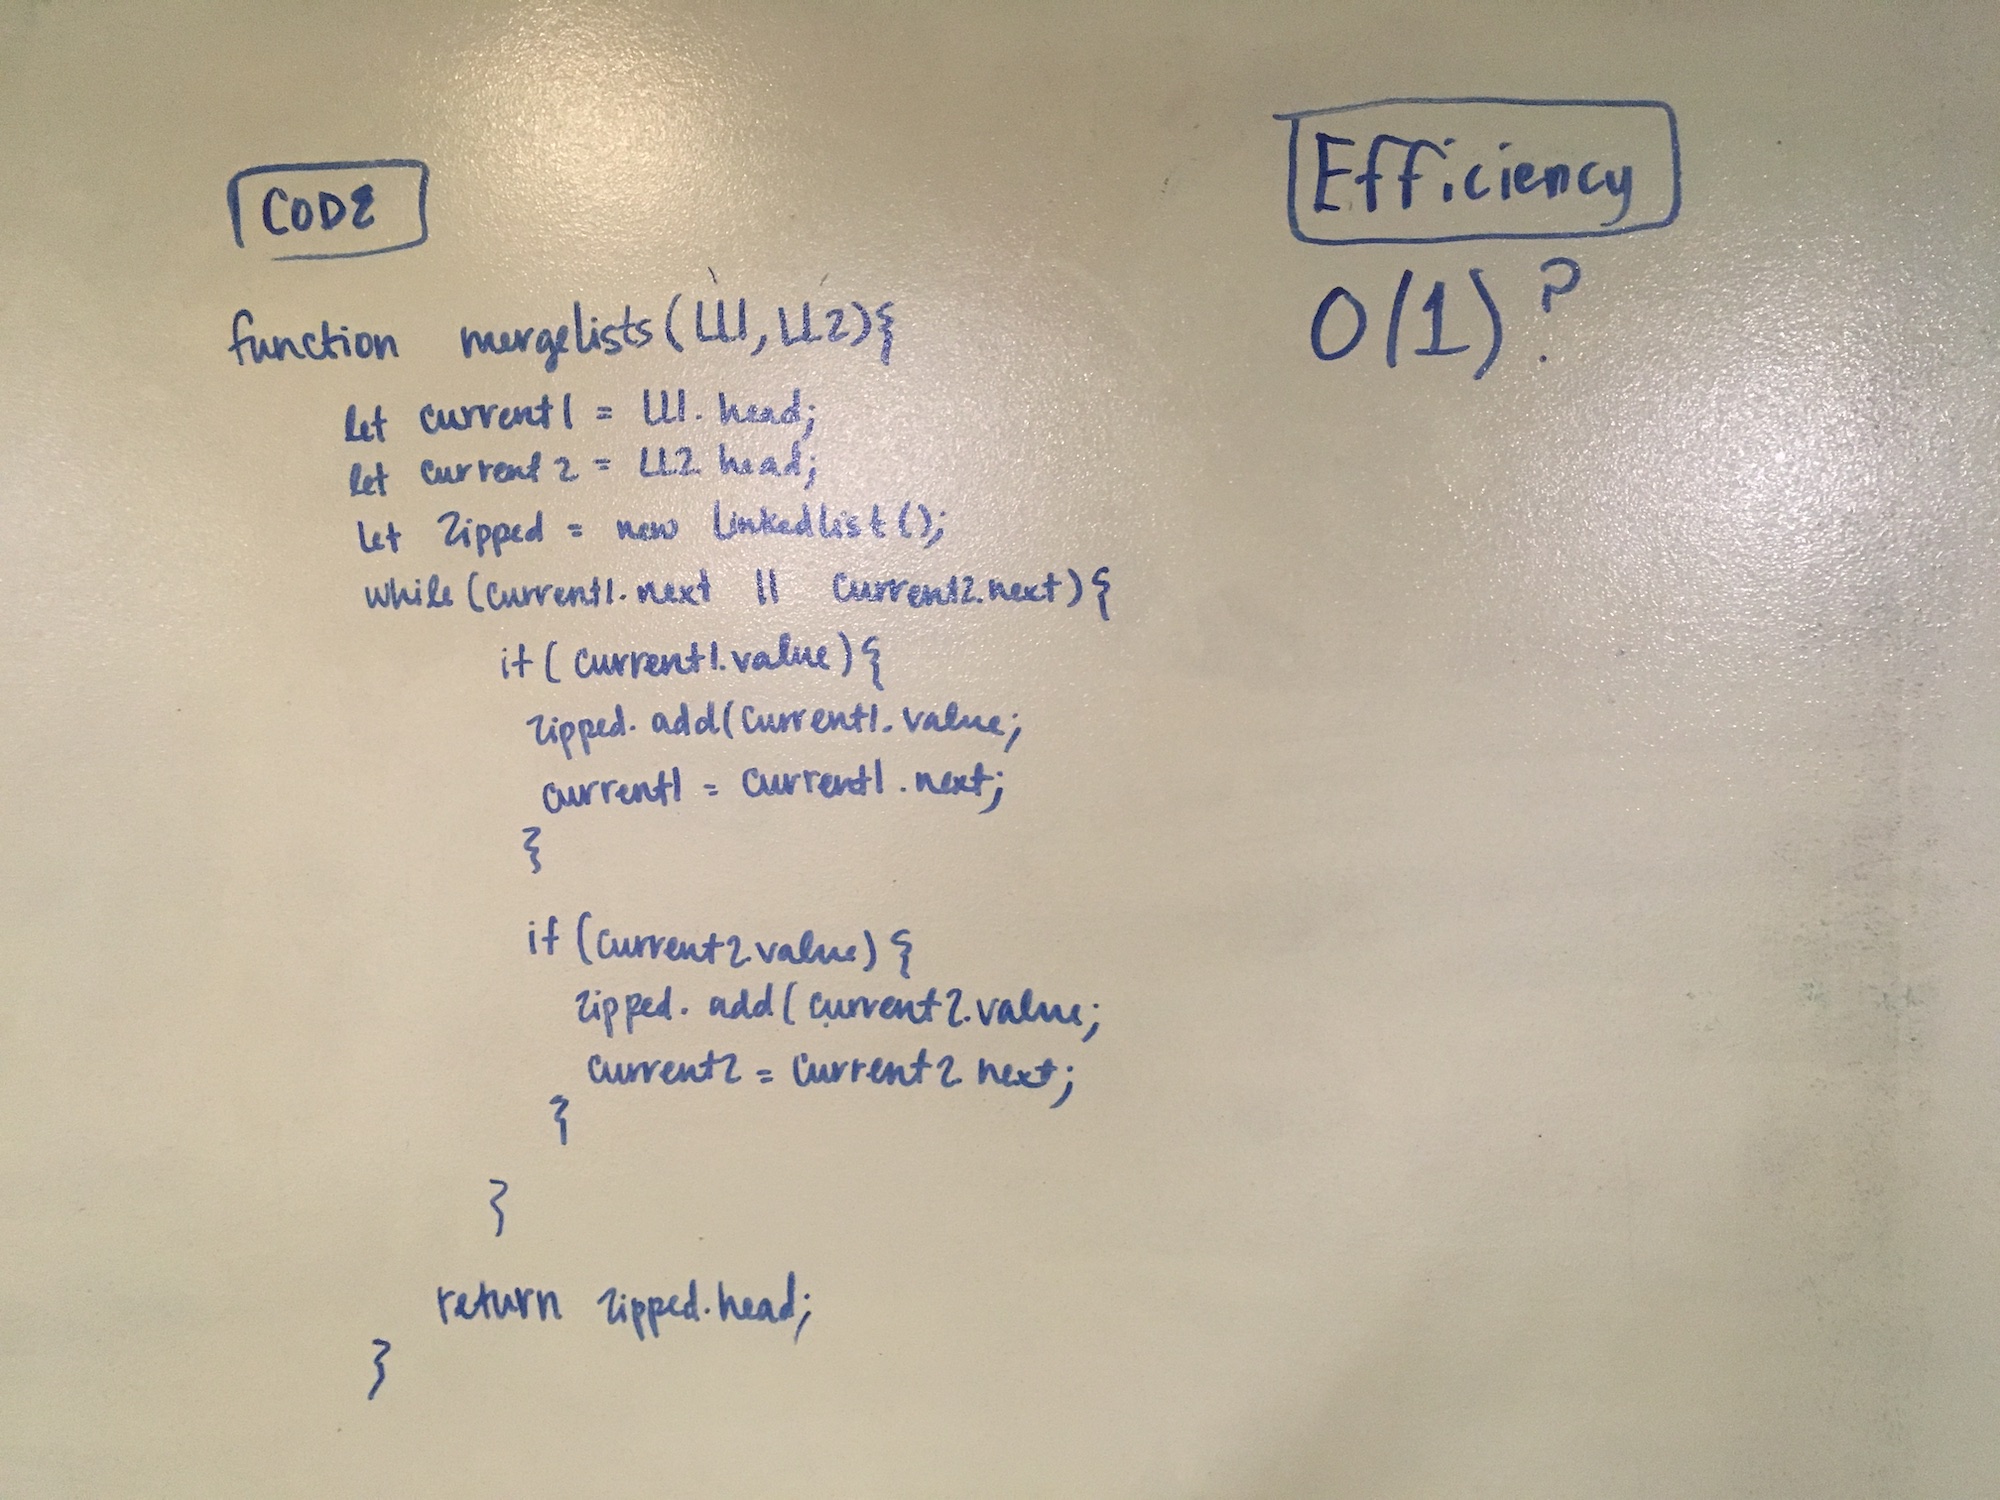 CODE
function mergelists(LL1, LL2){
let current1 = LL1.head;
let current2 = LL2.head;
let zipped = new Linkedlist();
while(current1.next || current2.next){
if(current1.value){
zipped.add(current1.value;
current1 = current1.next;
}
if(current2.value){
zipped.add(current2.value;
current2 = current2.next;
}
}
return zipped.head;
}
Efficiency
O(1)?